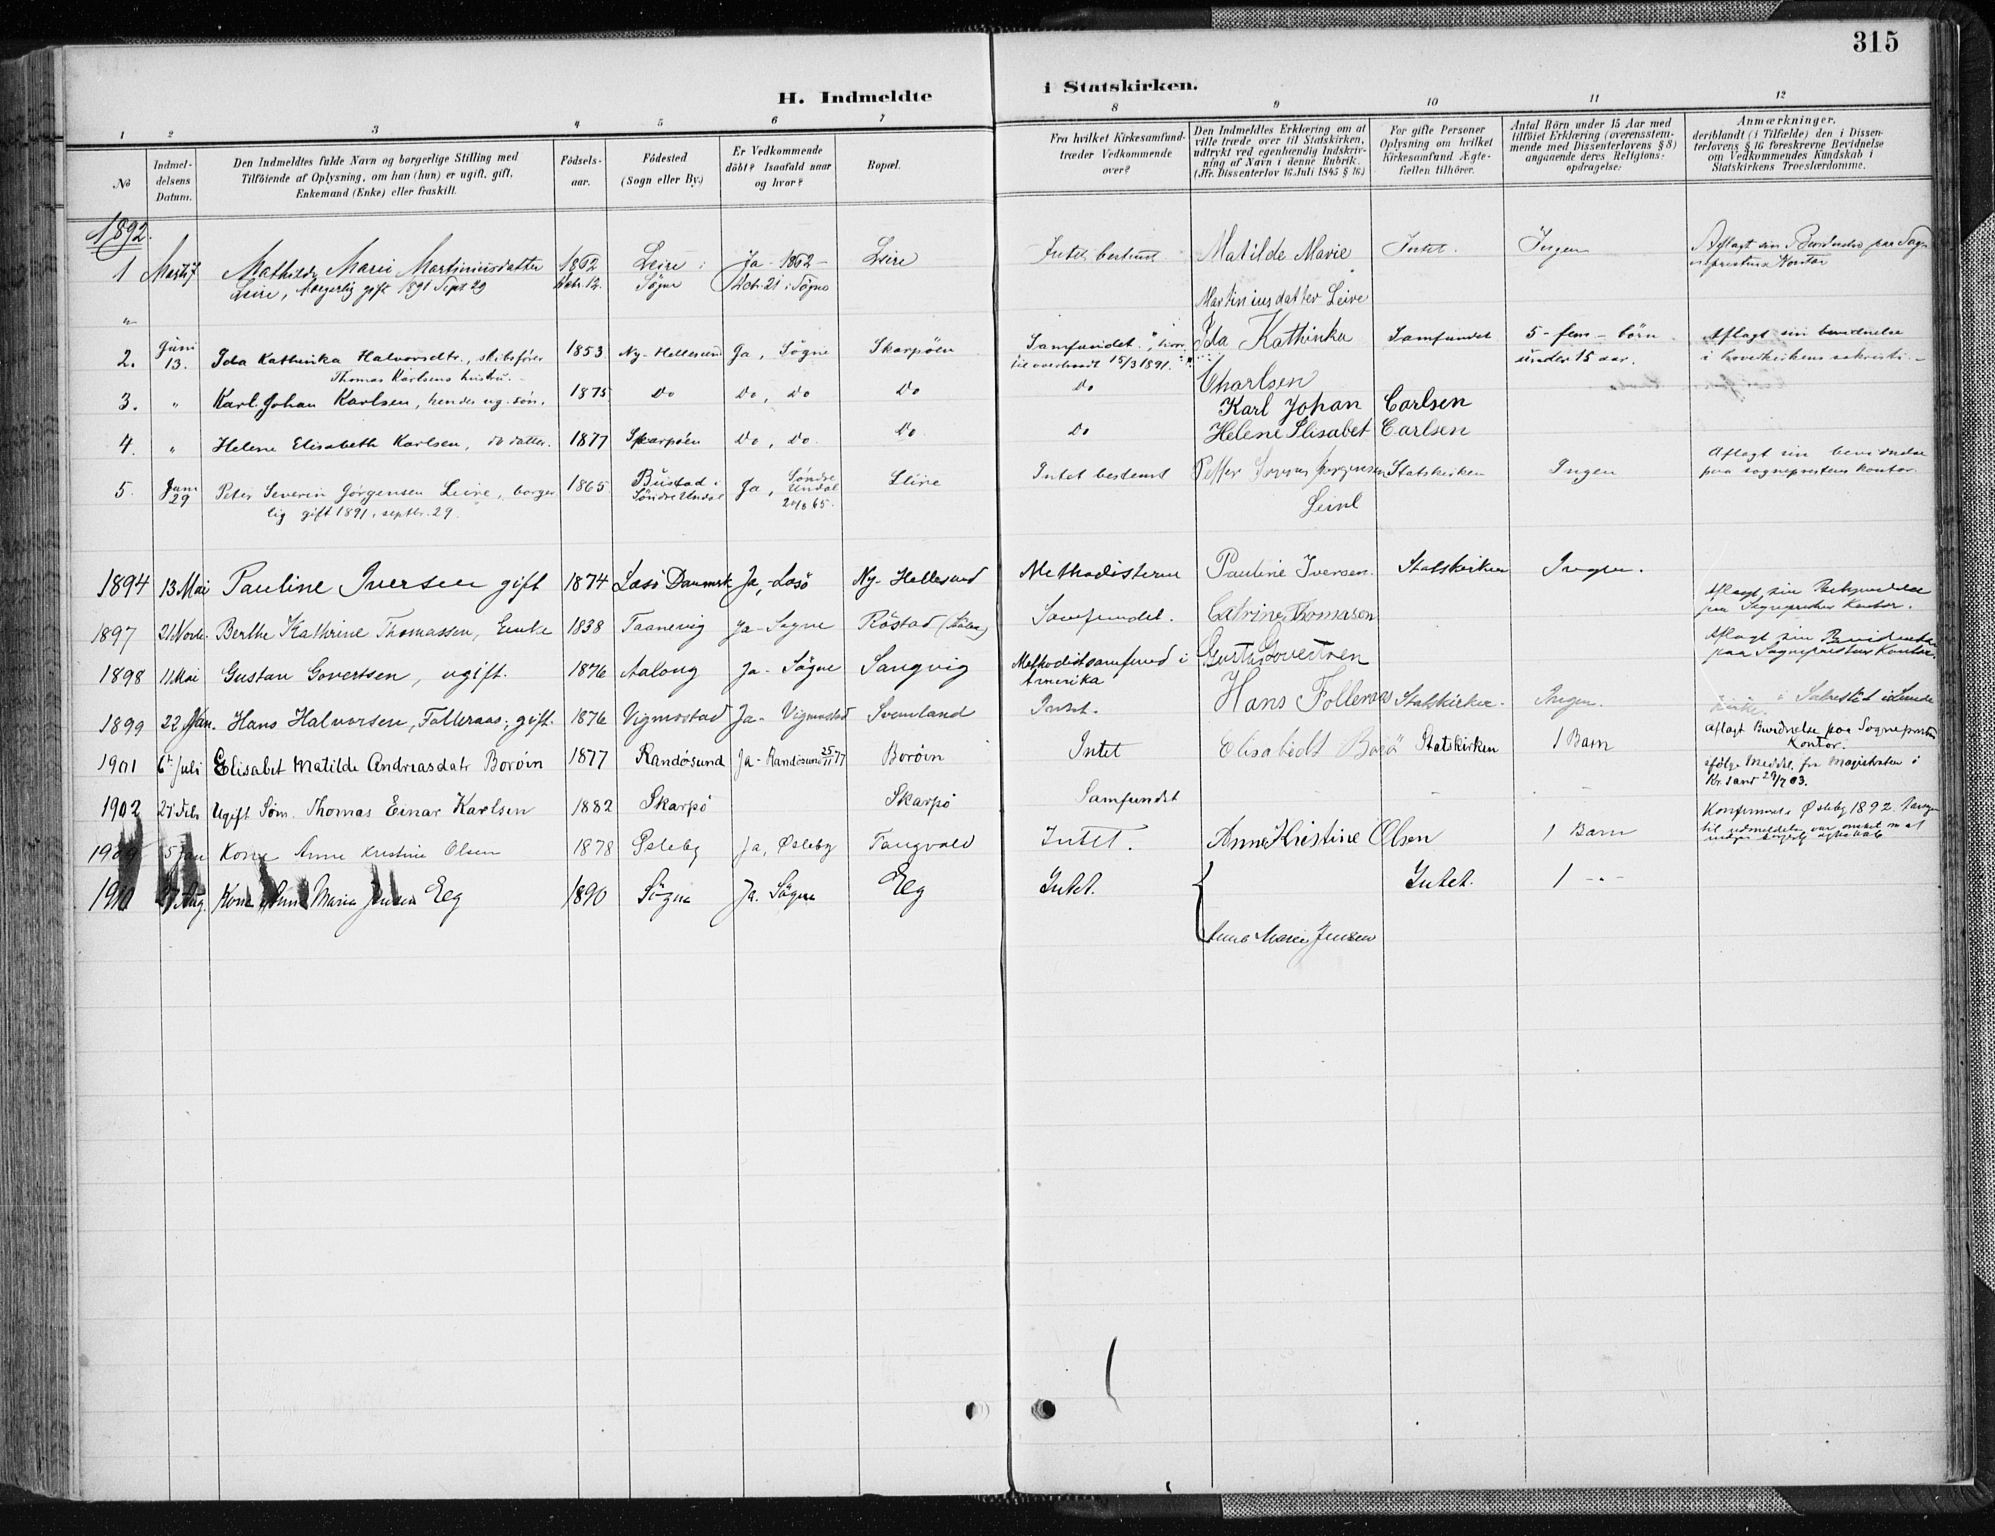 315
H. Indmeldte i Statskirken.
1 2 3 4 5 6 7 8 9 10 11 12
No
Indmel-
delsens
Datum.
Den Indmeldtes fulde Navn og borgerlige Stilling med
Tilföiende af Oplysning, om han (hun) er ugift, gift,
Enkemand (Enke) eller fraskilt.
Födsels-
aar.
Födested
(Sogn eller By.)
Er Vedkommende
döbt? Isaafald naar
og hvor?
Bopæl.
Fra hvilket Kirkesamfund-
træder Vedkommende
over?
Den Indmeldtes Erklæring om at
ville træde over til Statskirken,
udtrykt ved egenhændig Indskriv-
ning af Navn i denne Rubrik.
(Jfr. Dissenterlov 16 Juli 1845 § 16)
For gifte Personer
Oplysning om hvilket
Kirkesamfund Ægte-
fællen tilhörer.
Antal Börn under 15 Aar med
tilföiet Erklæring (overensstem-
mende med Dissenterlovens § 8)
angaaende deres Religions-
opdragelse:
Anmærkninger,
deriblandt (i Tilfælde) den i Dissen-
terlovens § 16 foreskrevne Bevidnelse
om Vedkommendes Kundskab i
Statskirkens Troeslærdomme.
1892.
1 Mathilde Marie Martiniusdatter 1862 Leire i Ja - 1862 - Leire Intet bestemt Matilde Marie Intet. Ingen Aflagt sin Bevidnelse paa Sogne-
Leire, borgerlig gift 1891 Sept 29 Sögne i Sögne prestens Kontor
Martiniusdatter Leire
2. Juni 13. Ida Kathinka Halvorsdtr., skibsförer 1853 Ny-Hellesund Ja, Sögne Skarpöen Samfundet Ida Kathinka Samfundet 5 - fem - börn Aflagt sin bevidnelse
Thomas Karlsens hustru. - 15/3 1891. under 15 aar. i hovedkirkens sakristi. -
Charlsen
3. " Karl Johan Karlsen, hendes ug. sön. 1875 Do Do, Do Do Do Karl Johan Carlsen
4. " Helene Elisabeth Karlsen, do datter. 1877 Skarpöen Do, Do. Do. Do Helene Elisabet Carlsen
5. Juni 29 Peter Severin Jörgensen Leire, borger- 1865 Bustad i Söndre Undal Ja, Söndre Undal Leire Intet bestemt Petter Jorgensen Statskirken Ingen Aflagt sin bevidnelse
lig gift 1891, septbr. 29. paa sogneprestens kontor.
1894 13 Mai Pauline Iversen gift 1874 Lasö Danmark Ja, - Lasö Ny-Hellesund Methodisterne Pauline Iversen. Statskirken Ingen. Aflagt sin
paa Sogneprestens Kontor.
1897 21 Novbr. Berthe Kathrine Thomassen, Enke 1838 Taanevig Ja - Sögne Röstad Samfundet. Catrine Thomasen Aflagt sin Bevidnelse
paa Sogneprestens Kontor.
1898 11 Mai Gustav Govertsen, ugift. 1876 Aalong Ja - Sögne Langvig Methodistsamfund i
Amerika
1899 22 Jan. Hans Halvorsen, Folleraas; gift. 1876 Vigmostad Ja - Vigmostad Svenland Intet. Hans Folleraas Statskirken. Ingen.
1901 6te Juli Elisabet Matilde Andreasdatr Boröin 1877 Randösund Ja - Randösund 25/11 77 Boröin Intet Elisabedt Borö Statskirken 1 Barn aflagt Bevidnelse paa Sogneprestens
Kontor.
1902 27 Feb Ugift Söm. Thomas Einar Karlsen 1882 Skarpö Skarpö Samfundet - - ifölge Meddel. fra Magistraten i
Kr.sand 29/7 03.
1909 5 Jan Kone Anne Kristine Olsen 1878 Ösleby Ja, Øsleby Tangvald Intet. Anne Kristine Olsen 1 Barn Konfirmert i Øsleby 1892.
1910 27 Aug. Kone Anna Maria Jensen Eeg 1890 Sögne Ja. Sögne Eeg Intet. Intet. 1 -"-
Anna Marie Jensen